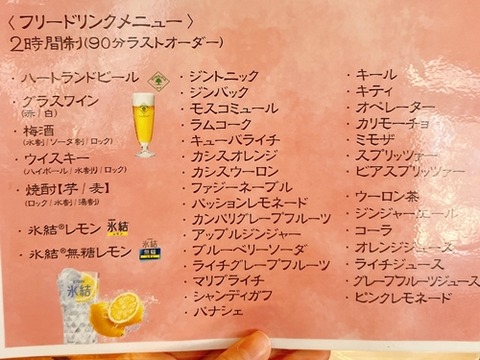 〈フリードリンクメニュー〉
2時間制(90分ラストオーダー)
・ハートランドビール
・グラスワイン
(赤/白)
・梅酒
(水割/ソーダ割/ロック)
・ウイスキー
(ハイボール/水割り/ロック)
・焼酎【芋/麦】
(ロック/水割/湯割)
・氷結®レモン 氷結
・氷結®無糖レモン 氷結 無糖
氷結
・ジントニック
・ジンバック
・モスコミュール
・ラムコーク
・キューバライチ
・カシスオレンジ
・カシスウーロン
・ファジーネーブル
・パッションレモネード
・カンパリグレープフルーツ
・アップルジンジャー
・ブルーベリーソーダ
・ライチグレープフルーツ
・マリブライチ
・シャンディガフ
・パナシェ
・キール
・キティ
・オペレーター
・カリモーチョ
・ミモザ
・スプリッツァー
・ビアスプリッツァー
・ウーロン茶
・ジンジャーエール
・コーラ
・オレンジジュース
・ライチジュース
・グレープフルーツジュース
・ピンクレモネード